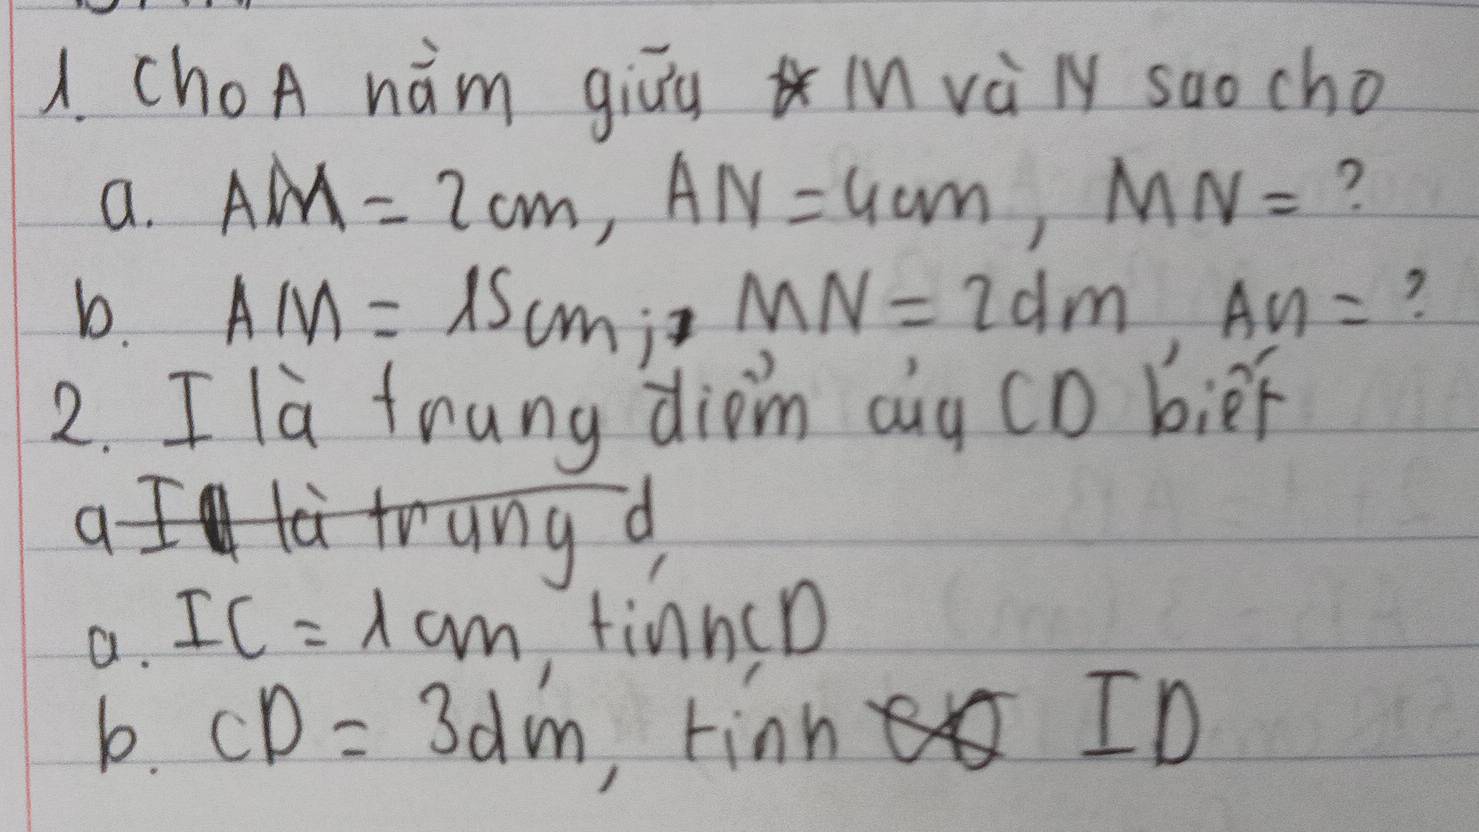 1. Cho A nằm giữa M và N sao cho
a. AM = 2cm, AN = 4cm, MN = ?
b. AM = 15cm; MN = 2dm, An = ?
2. I là trung điểm của CD biết
a I là trung đ
a. IC = 1cm, tính CD
b. CD = 3dm, tính ID